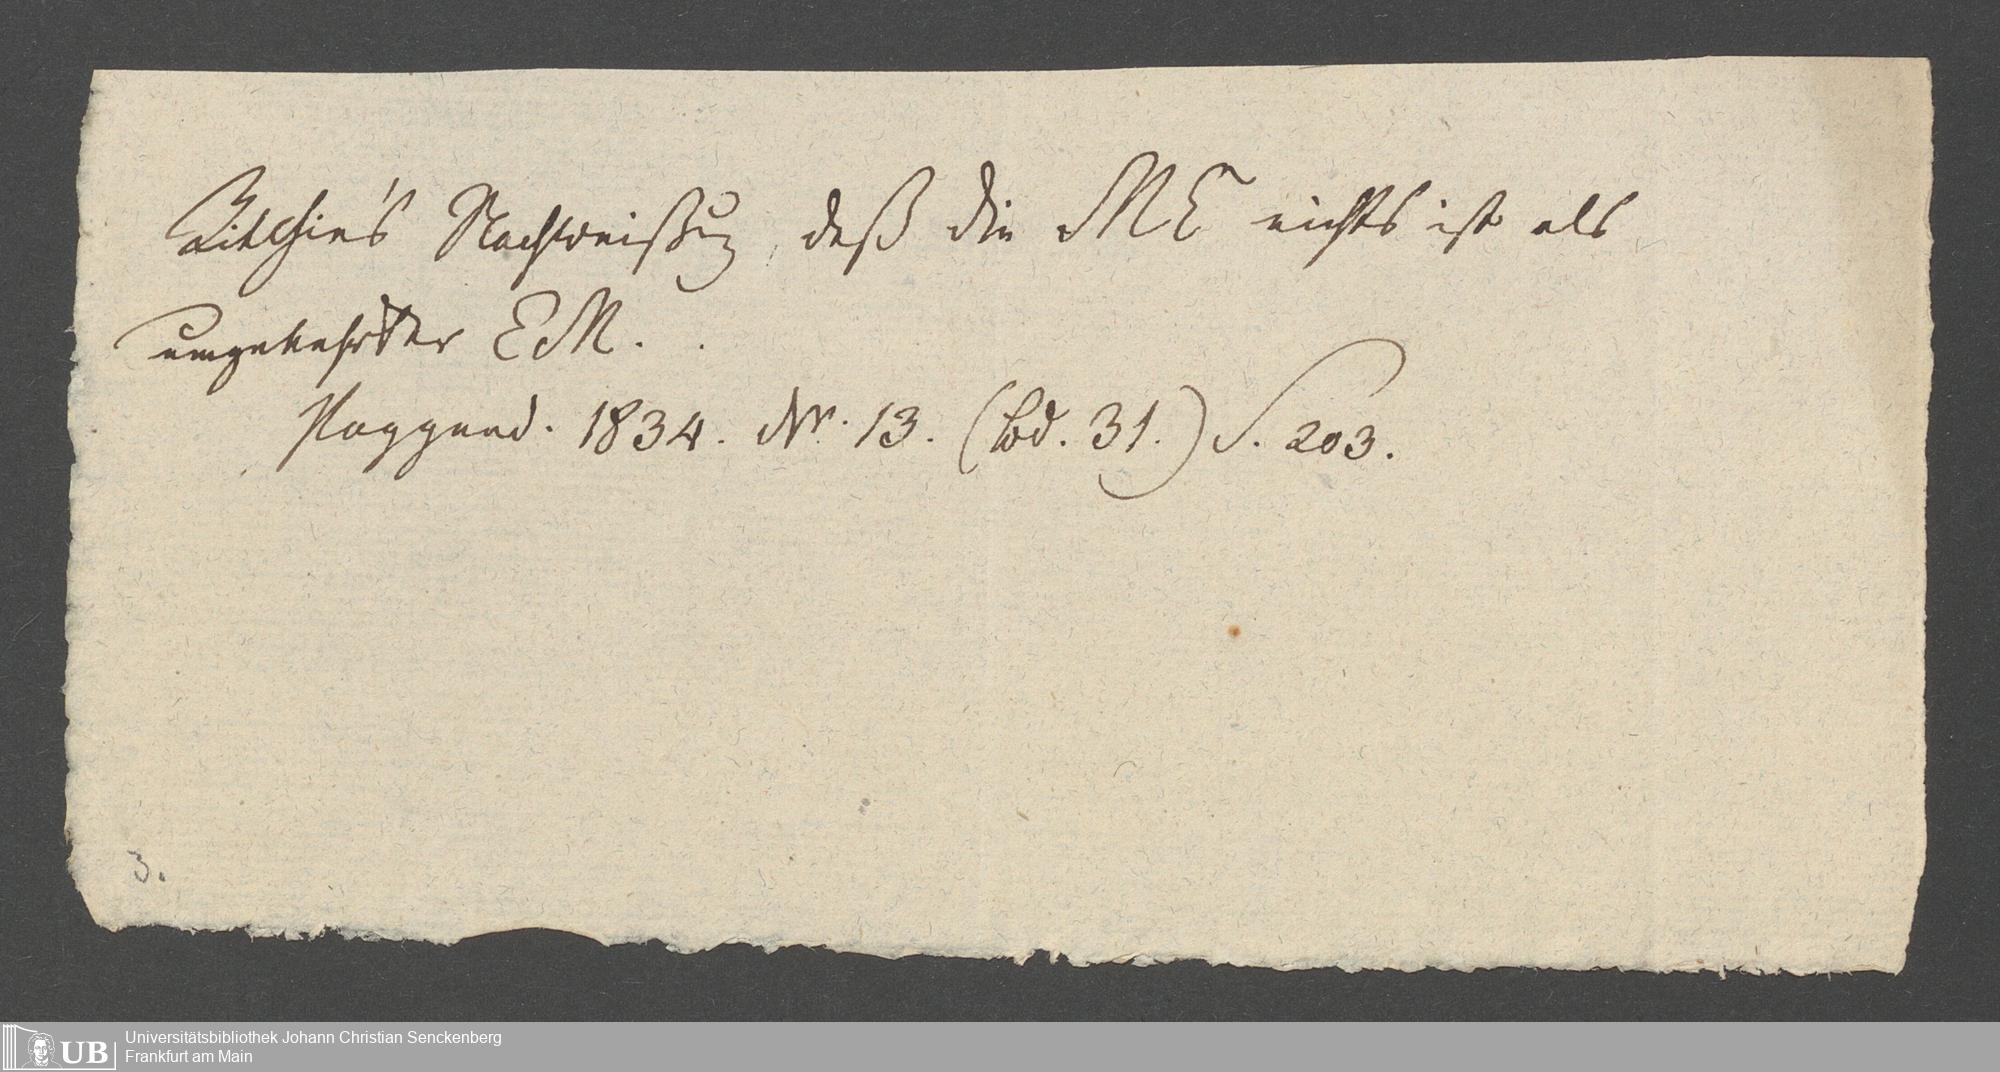 Ritchie's Nachweisung, daß die ME nichts ist als
umgekehrter EM.
Poggend. 1834. Nr. 13. (Bd. 31.) S. 203.
3.
UB
Universitätsbibliothek Johann Christian Senckenberg
Frankfurt am Main